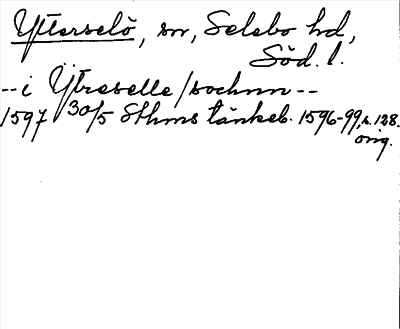 Ytterselö, sn, Selebo hd,
Söd. l.
--i Ÿtreselle/sochnn--
1597 30/5 Sthms tänkeb. 1596-99, s. 128.
orig.